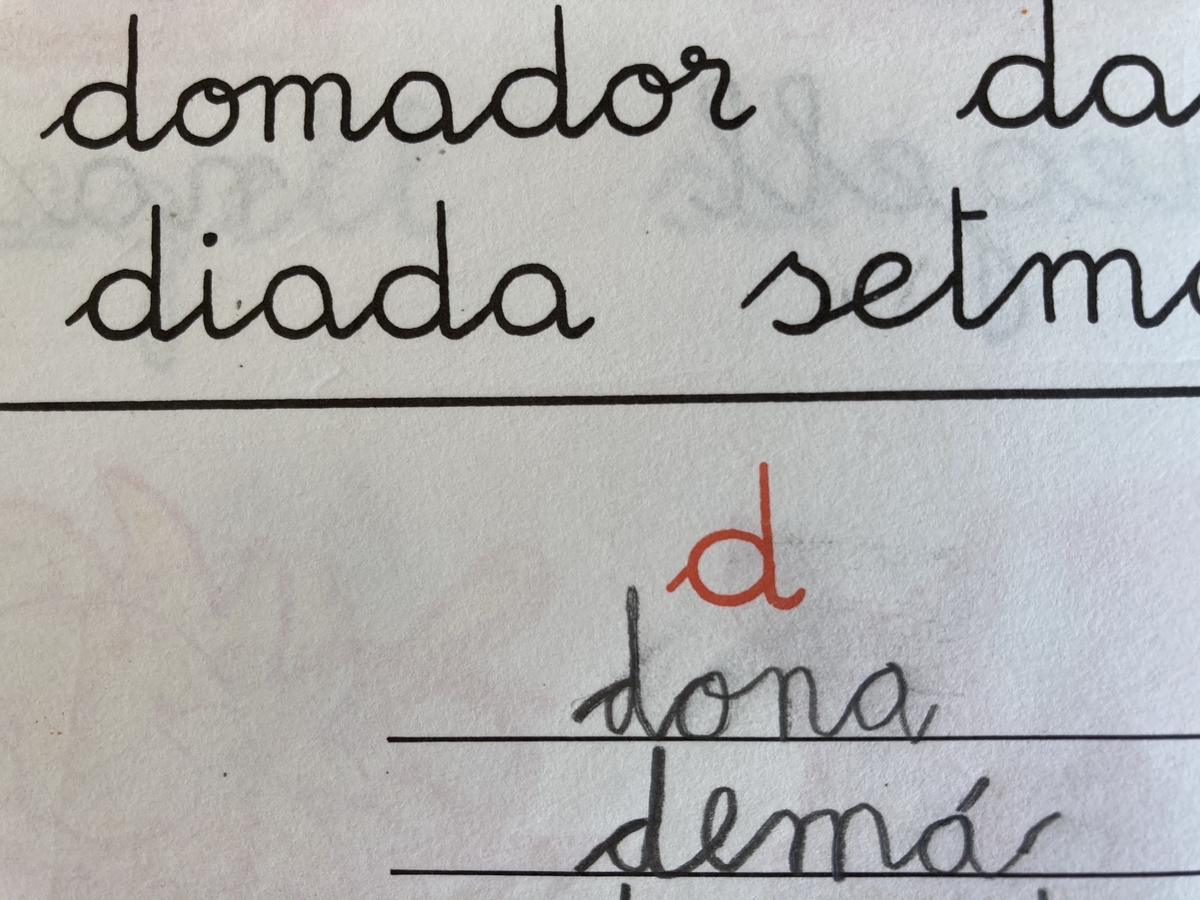 domador da
diada setm
d
dona
demá